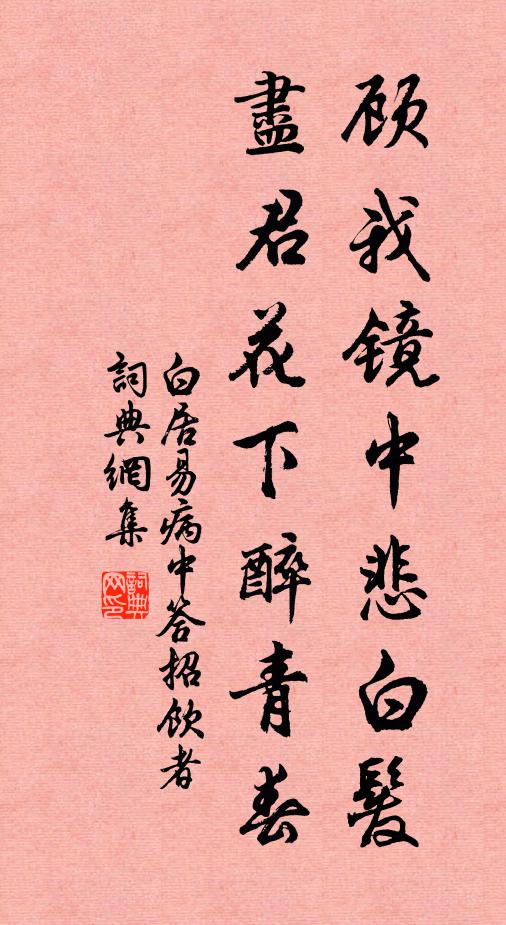 顾我镜中悲白髮
盡君花下醉青春
白居易病中答招飲者
詞典網集
詞典网印